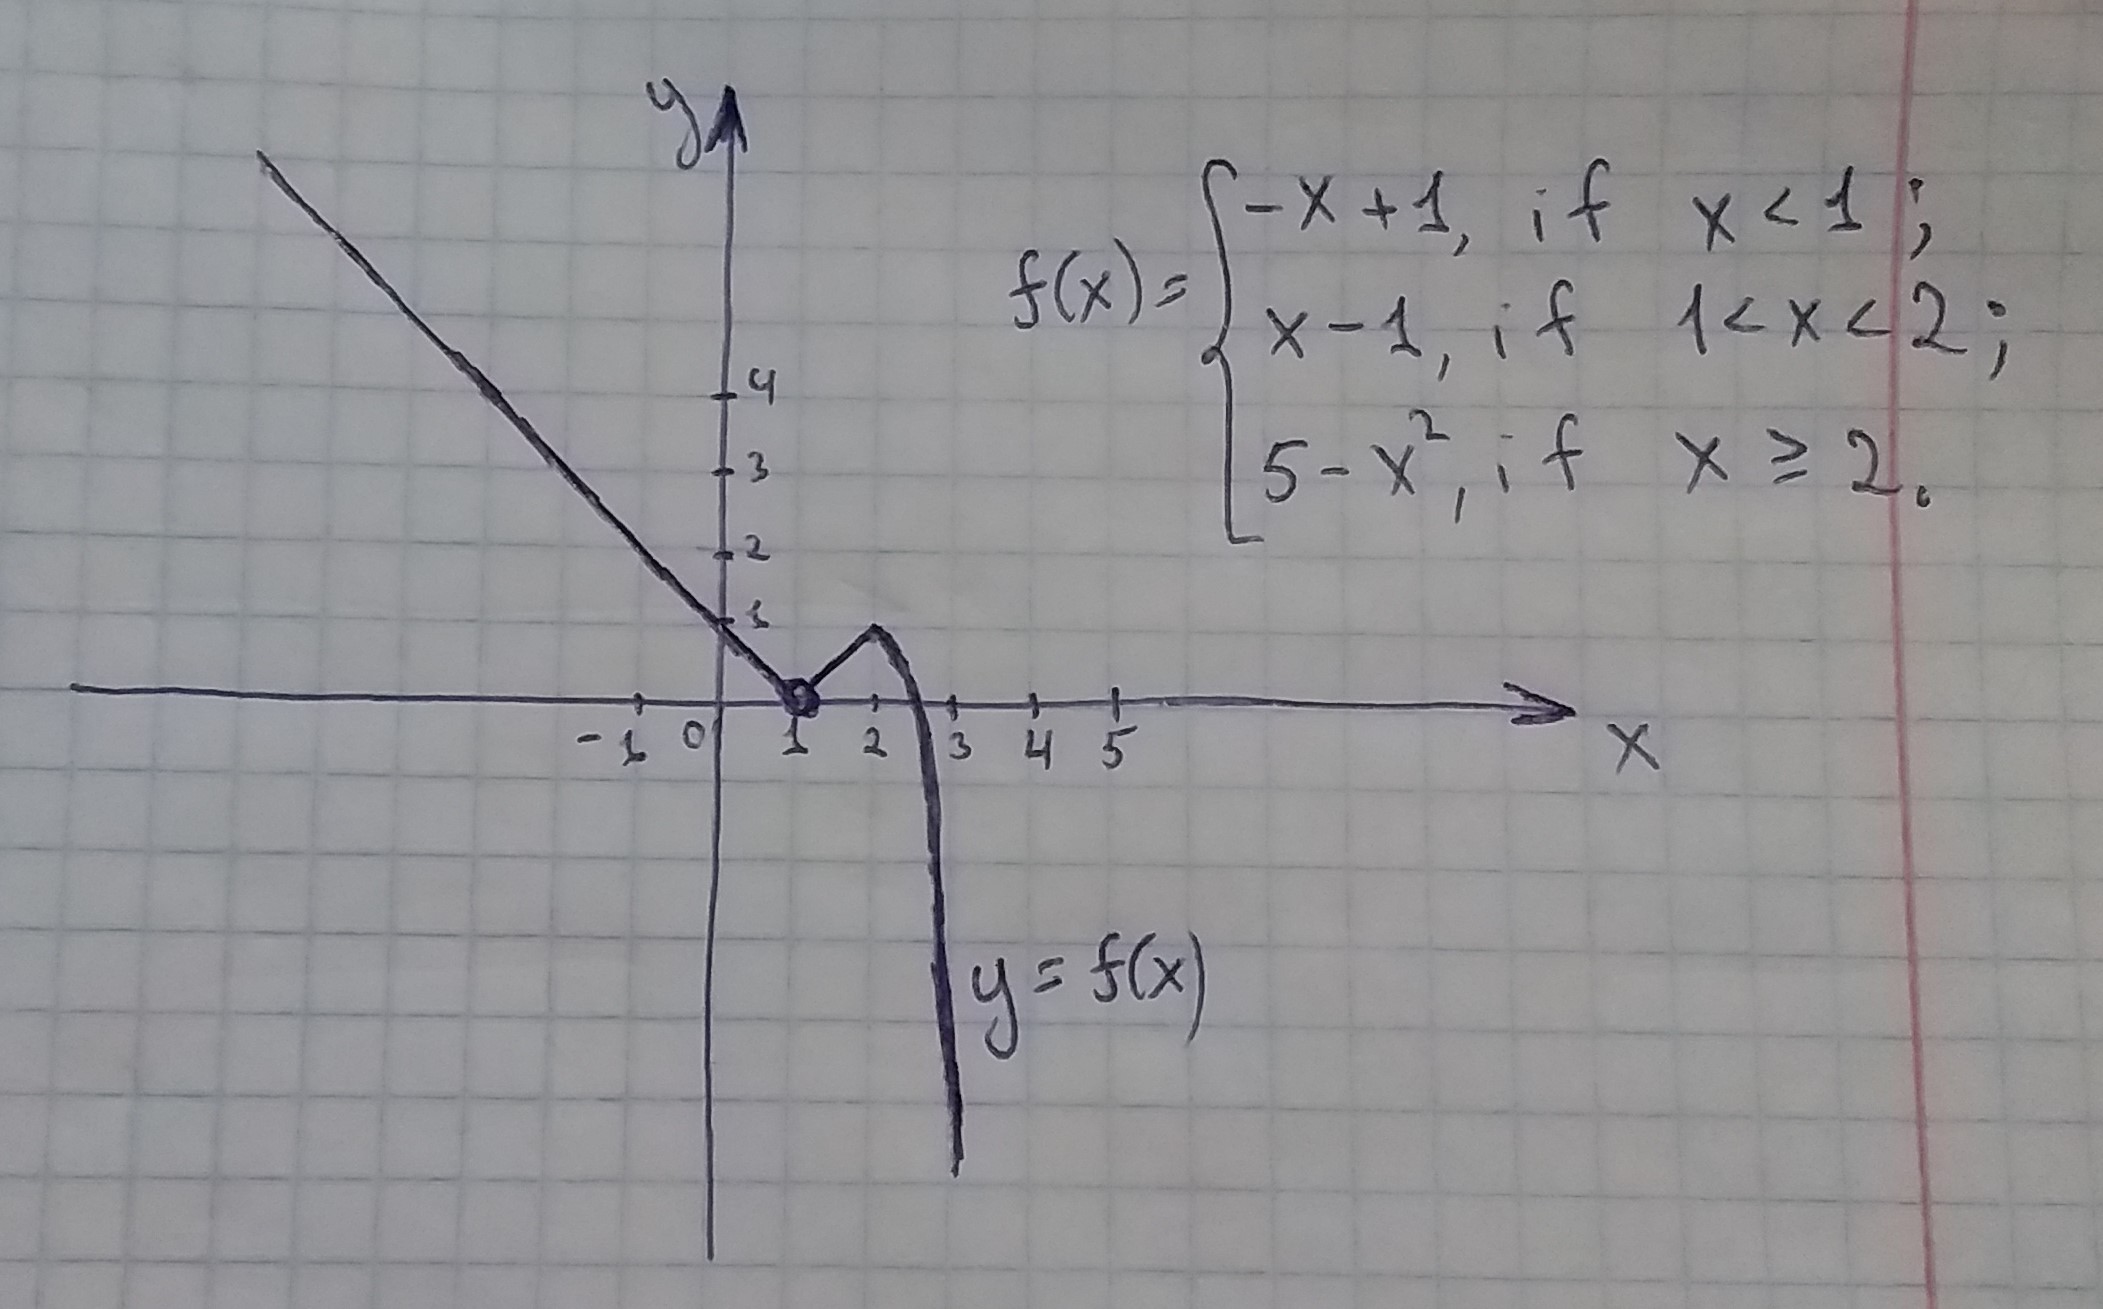 y
f(x) = { -x + 1, if x < 1;
x - 1, if 1 < x < 2;
5 - x², if x ≥ 2.
4
3
2
1
-1 0 1 2 3 4 5
x
y = f(x)